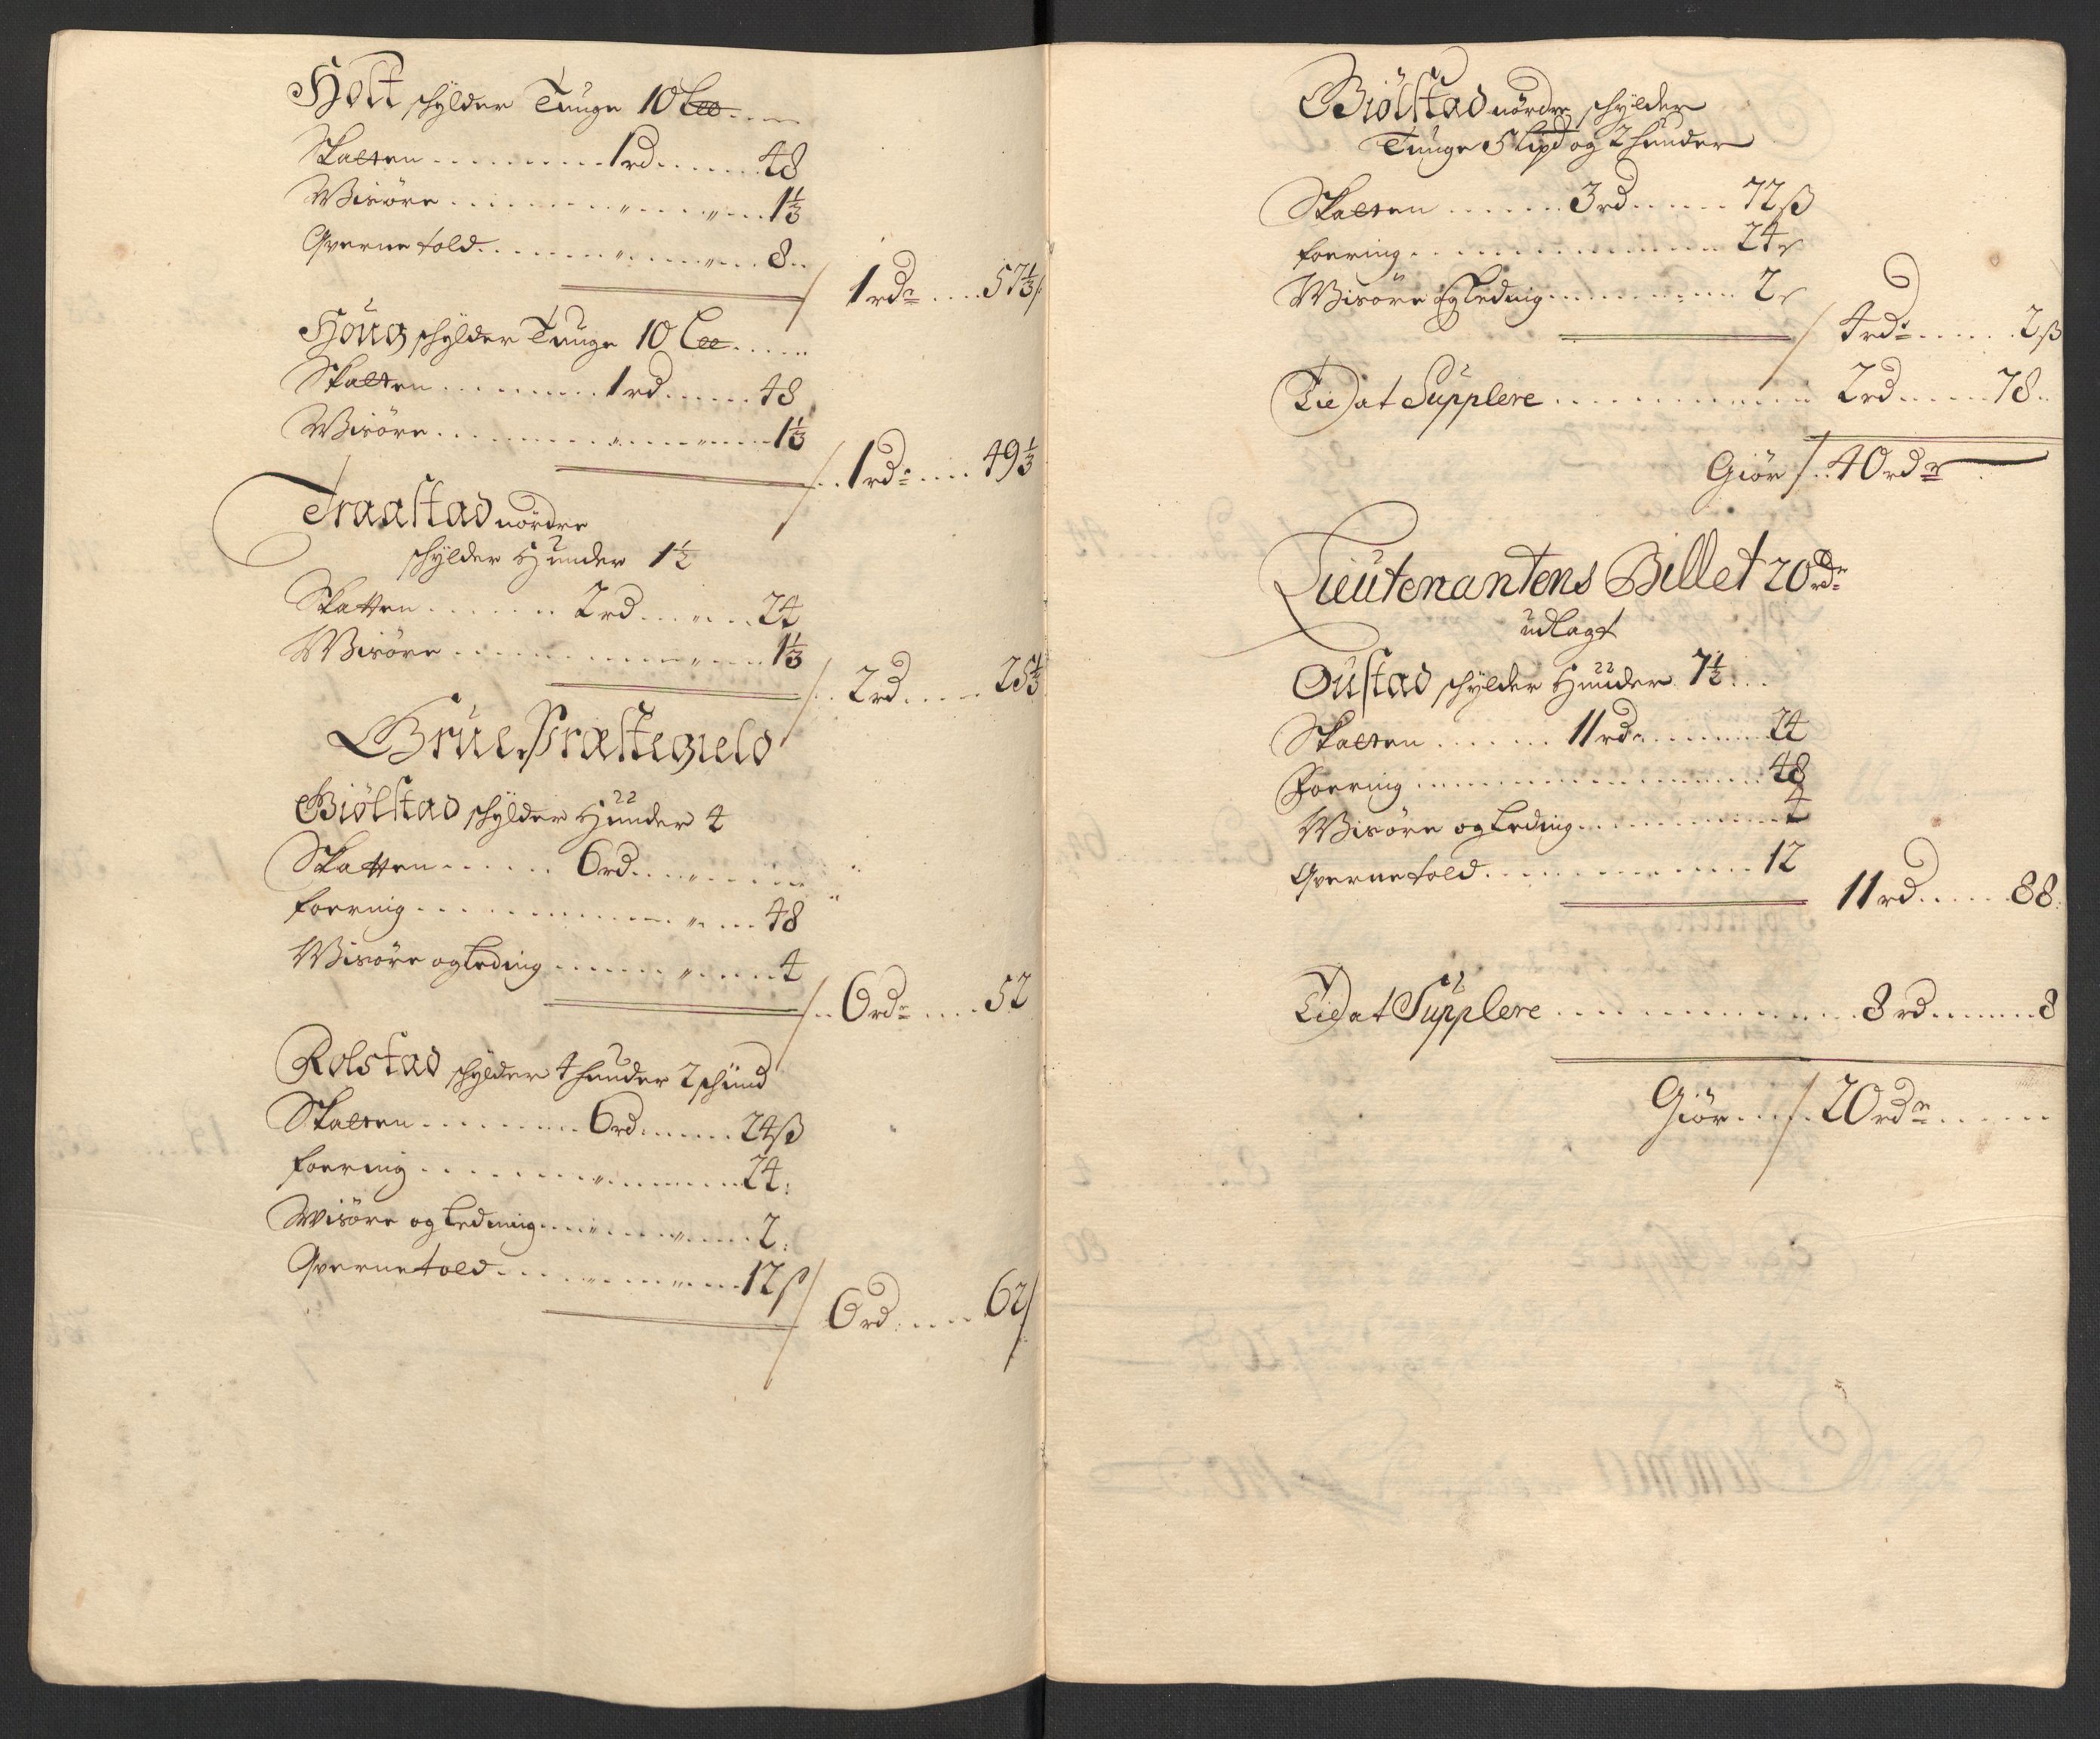 Holt schylder Tunge 10 Lee
Skatten 1 rd 48
Wisøre " " 1⅓
Qvernetold " " 8
1 rdr 57⅓
Houg schylder Tunge 10 Lee
Skatten 1 rd 48
Wisøre " " 1⅓
1 rdr 49⅓
Traastad nordre
schylder Hunder 1½
Skatten 2 rd " 24
Wisøre " 1⅓
2 rd 25⅓
Grue Præstegield
Biølstad schylder Huuder 4
Skatten 6 rd "
foering " 48
Wisøre og Leding " 4
6 rdr 52
Rolstad schylder 4 huuder 2 schind
Skatten 6 rd 24 ß
foering " 24
Wisøre og Leding " 2
Qvernetold " " 12 ß
6 rd 62
Biølstad nordre schylder
Tunge 5 Lispd og 2 huuder
Skatten 3 rd 72 ß
foering 24
Wisøre og Leding 2
4 rdr 2 ß
Tid at Supplere 2 rd 78
Giør 40 rdr
Lieutenantens Billet 20 rdr
udlagt
Oustad schylder Huuder 7½
Skatten 11 rd 24
Foering 48
Wisøre og Leding 4
Qvernetold 12
11 rd 88
Tid at Supplere 8 rd 8
Giør 20 rdr